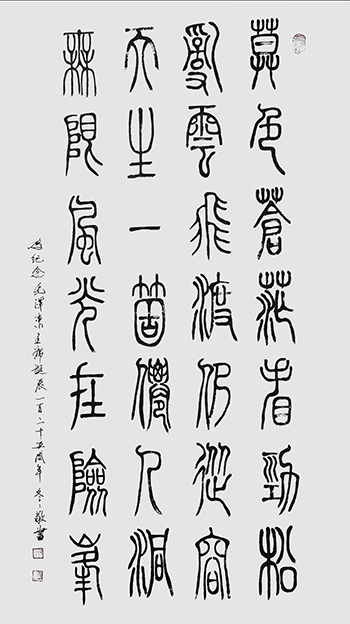 莫色蒼茫看勁松
亂雲飛渡仍從容
天生一箇僊人洞
無限風光在險峯
為紀念毛澤東主席誕辰一百二十五周年 冬 敬書